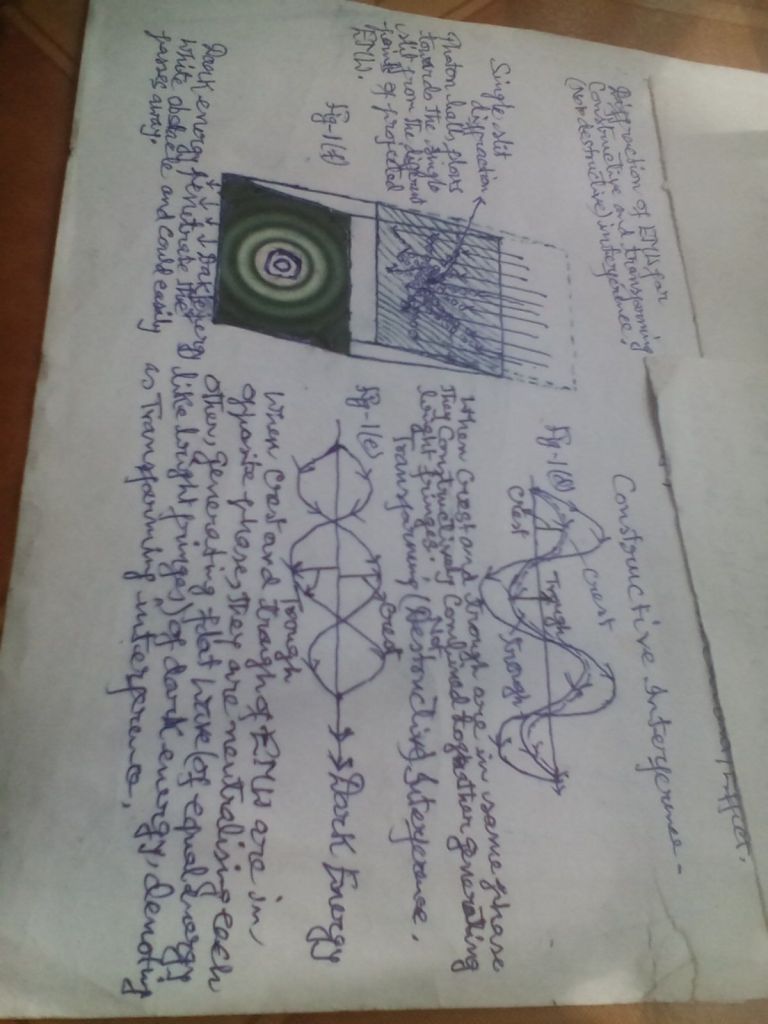 Effect.
Constructive Interference-
Diffraction of EMW for
Constructive and transforming
(Not destructive) interference.
Fig-1(d)
Crest
Crest
Trough
Trough
When Crest and trough are in same phase
They Constructively Combined together generating
bright fringes.
Not
Transforming (Destructive) Interference.
Fig-1(e)
Crest
Trough
Dark Energy
When crest and trough of EMW are in
opposite phases, they are neutralising each
other, generating flat wave (of equal energy
like bright fringes) of dark energy, denoting
as Transforming interference,
Single slit
diffraction
Photon balls flows
towards the single
slit from the different
points of projected
EMW.
Fig-1(f)
Dark energy
Dark energy penetrate the
white obstacle and could easily
passes away.